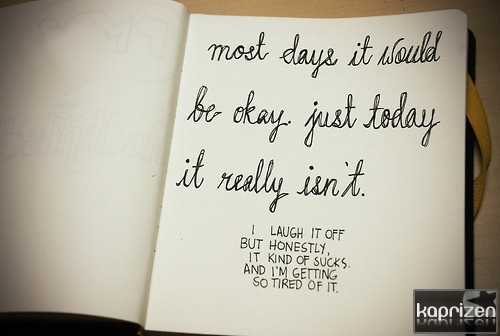 most days it would
be okay. just today
it really isn't.
I LAUGH IT OFF
BUT HONESTLY,
IT KIND OF SUCKS.
AND I'M GETTING
SO TIRED OF IT.
kaprizen